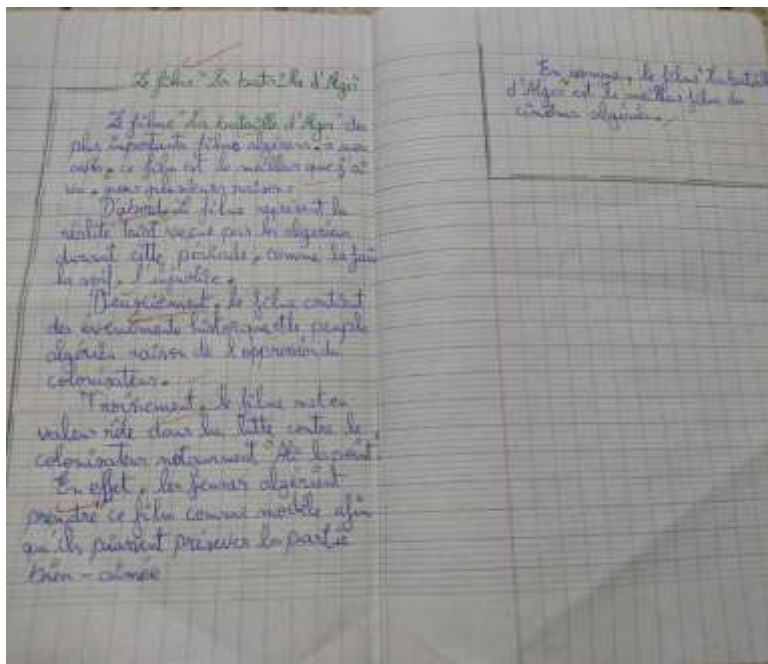 Le film "La bataille d'Alger
Le film "La bataille d'Alger" des
plus importants films algériens. a mon
avis, ce film est le meilleur que j'ai
vu, pour plusieurs raisons.
D'abord, Le film représent la
réalité tout par les algériens
durant cette période, comme la faim
la soif, l'injustice.
Deuxièment, le film contient
des événements historique le peuple
algérien raison de l'oppression du
colonisateur.
Troisièment, le film met en
valeur rôle dans la lutte contre le
colonisateur notamment "Ali la point".
En effet, les jeunes algérient
prendre ce film comme modèle afin
qu'ils préserver la partie
bien-aimée
En somme, le film "La bataille
d'Alger" est le meilleur film du
cinéma algérien.